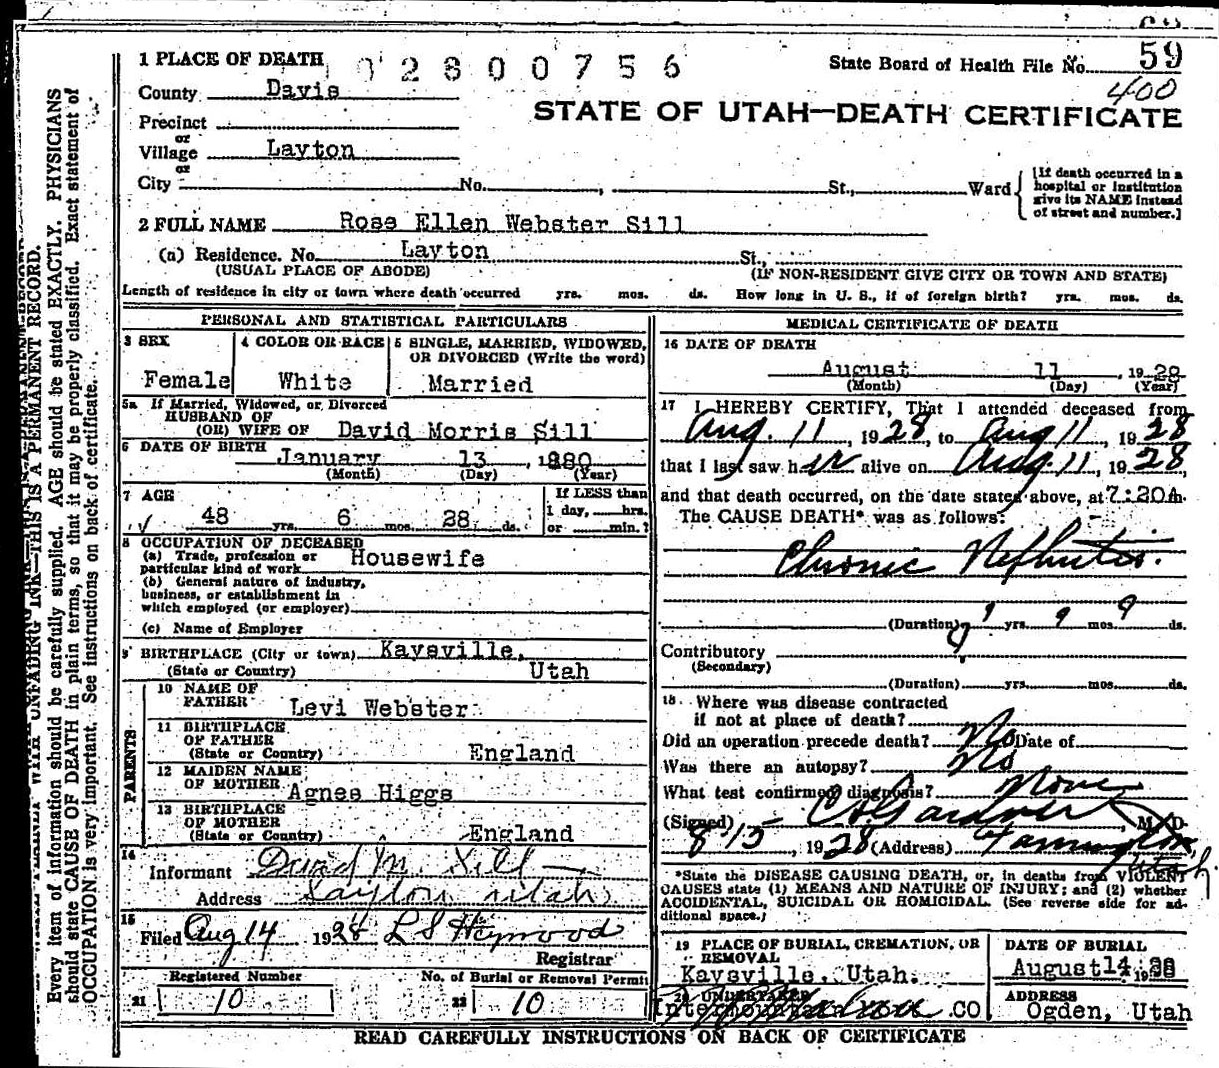 59
0 2 8 0 0 7 5 6
State Board of Health File No. 59
400
1 PLACE OF DEATH
County Davis
STATE OF UTAH—DEATH CERTIFICATE
Precinct
or
Village Layton
or
City No. , St., Ward
[If death occurred in a
hospital or institution
give its NAME instead
of street and number.]
2 FULL NAME Rose Ellen Webster Sill
(a) Residence. No. Layton St.,
(USUAL PLACE OF ABODE) (IF NON-RESIDENT GIVE CITY OR TOWN AND STATE)
Length of residence in city or town where death occurred yrs. mos. ds. How long in U. S., if of foreign birth? yrs. mos. ds.
PERSONAL AND STATISTICAL PARTICULARS
3 SEX
Female
4 COLOR OR RACE
White
5 SINGLE, MARRIED, WIDOWED,
OR DIVORCED (Write the word)
Married
5a If Married, Widowed, or Divorced
HUSBAND OF
(OR) WIFE OF David Morris Sill
6 DATE OF BIRTH January 13, 1880
(Month) (Day) (Year)
7 AGE
48 yrs. 6 mos. 28 ds.
If LESS than
1 day, hrs.
or min.?
8 OCCUPATION OF DECEASED
(a) Trade, profession or
particular kind of work Housewife
(b) General nature of industry,
business, or establishment in
which employed (or employer)
(c) Name of Employer
9 BIRTHPLACE (City or town) Kaysville,
(State or Country) Utah
PARENTS
10 NAME OF
FATHER Levi Webster
11 BIRTHPLACE
OF FATHER
(State or Country) England
12 MAIDEN NAME
OF MOTHER Agnes Higgs
13 BIRTHPLACE
OF MOTHER
(State or Country) England
14
Informant David M. Sill
Address Layton Utah
15
Filed Aug 14 1928 L S Heywood
Registrar
Registered Number
21 10
No. of Burial or Removal Permit
22 10
MEDICAL CERTIFICATE OF DEATH
16 DATE OF DEATH
August 11, 1928
(Month) (Day) (Year)
17 I HEREBY CERTIFY, That I attended deceased from
Aug. 11, 1928, to Aug 11, 1928
that I last saw her alive on Aug. 11, 1928,
and that death occurred, on the date stated above, at 7:20A.
The CAUSE DEATH* was as follows:
Chronic Nephritis.
(Duration) yrs. 9 mos. 9 ds.
Contributory
(Secondary)
(Duration) yrs. mos. ds.
18 Where was disease contracted
if not at place of death?
Did an operation precede death? No Date of
Was there an autopsy? No
What test confirmed diagnosis? None
(Signed) Gardner, M. D.
8 15, 1928 (Address) Farmington, Utah.
*State the DISEASE CAUSING DEATH, or, in deaths from VIOLENT
CAUSES state (1) MEANS AND NATURE OF INJURY; and (2) whether
ACCIDENTAL, SUICIDAL OR HOMICIDAL. (See reverse side for ad-
ditional space.)
19 PLACE OF BURIAL, CREMATION, OR
REMOVAL
Kaysville, Utah.
DATE OF BURIAL
August 14, 1928
20 UNDERTAKER
CO
ADDRESS
Ogden, Utah
READ CAREFULLY INSTRUCTIONS ON BACK OF CERTIFICATE
WITH UNFADING INK—THIS IS A PERMANENT RECORD.
Every item of information should be carefully supplied. AGE should be stated EXACTLY. PHYSICIANS
should state CAUSE OF DEATH in plain terms, so that it may be properly classified. Exact statement of
OCCUPATION is very important. See instructions on back of certificate.